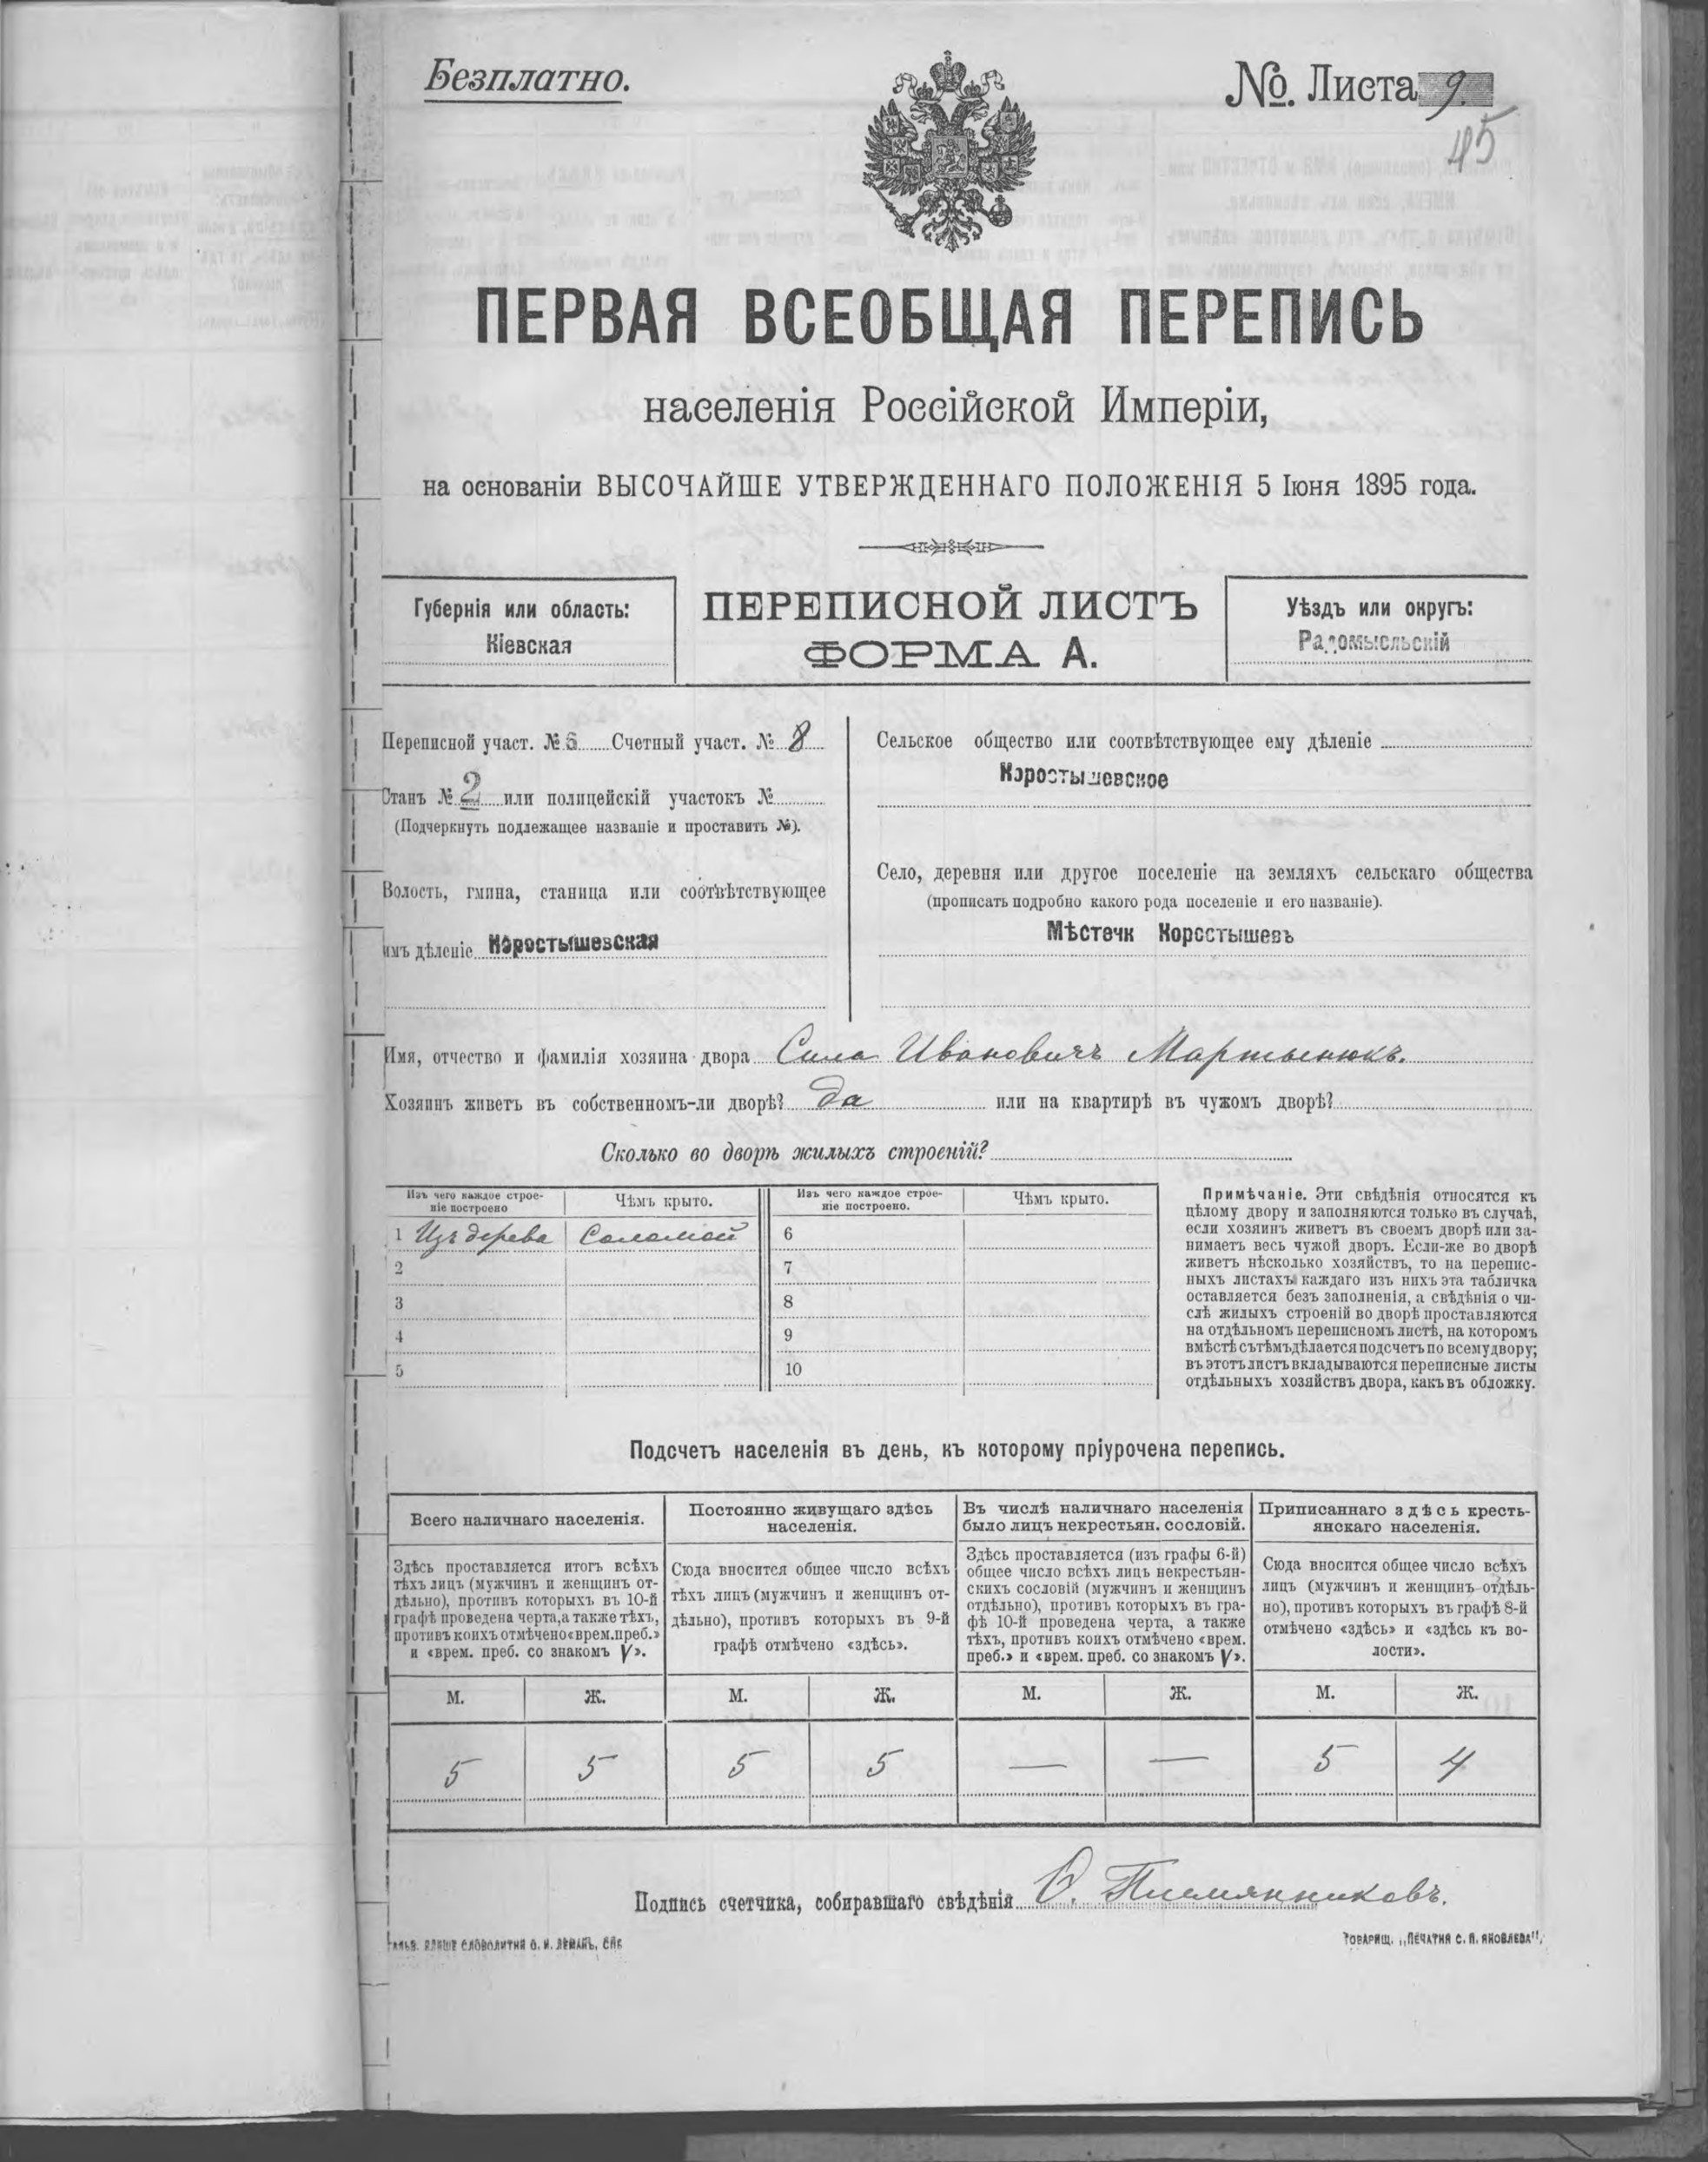 Безплатно.
№. Листа 9.
45
ПЕРВАЯ ВСЕОБЩАЯ ПЕРЕПИСЬ
населенія Россійской Имперіи,
на основаніи ВЫСОЧАЙШЕ УТВЕРЖДЕННАГО ПОЛОЖЕНІЯ 5 Іюня 1895 года.
Губернія или область:
Кіевская
ПЕРЕПИСНОЙ ЛИСТЪ
ФОРМА А.
Уѣздъ или округъ:
Радомысльскій
Переписной участ. № Счетный участ. № 8
Станъ № 2 или полицейскій участокъ №
(Подчеркнуть подлежащее названіе и проставить №).
Волость, гмина, станица или соотвѣтствующее
имъ дѣленіе Коростышевская
Сельское общество или соотвѣтствующее ему дѣленіе
Коростышевское
Село, деревня или другое поселеніе на земляхъ сельскаго общества
(прописать подробно какого рода поселеніе и его названіе).
Мѣстечк Коростышевъ
Имя, отчество и фамилія хозяина двора Сила Ивановичъ Мартынюкъ.
Хозяинъ живетъ въ собственномъ-ли дворѣ? да или на квартирѣ въ чужомъ дворѣ?
Сколько во дворѣ жилыхъ строеній?
Изъ чего каждое строе-
ніе построено
Чѣмъ крыто.
1 Изъ дерева Соломой
2
3
4
5
Изъ чего каждое строе-
ніе построено.
Чѣмъ крыто.
6
7
8
9
10
Примѣчаніе. Эти свѣдѣнія относятся къ
цѣлому двору и заполняются только въ случаѣ,
если хозяинъ живетъ въ своемъ дворѣ или за-
нимаетъ весь чужой дворъ. Если-же во дворѣ
живетъ нѣсколько хозяйствъ, то на перепис-
ныхъ листахъ каждаго изъ нихъ эта табличка
оставляется безъ заполненія, а свѣдѣнія о чи-
слѣ жилыхъ строеній во дворѣ проставляются
на отдѣльномъ переписномъ листѣ, на которомъ
вмѣстѣ съ тѣмъ дѣлается подсчетъ по всему двору;
въ этотъ листъ вкладываются переписные листы
отдѣльныхъ хозяйствъ двора, какъ въ обложку.
Подсчетъ населенія въ день, къ которому пріурочена перепись.
Всего наличнаго населенія.
Здѣсь проставляется итогъ всѣхъ
тѣхъ лицъ (мужчинъ и женщинъ от-
дѣльно), противъ которыхъ въ 10-й
графѣ проведена черта, а также тѣхъ,
противъ коихъ отмѣчено «врем. преб.»
и «врем. преб. со знакомъ V».
М. Ж.
5 5
Постоянно живущаго здѣсь
населенія.
Сюда вносится общее число всѣхъ
тѣхъ лицъ (мужчинъ и женщинъ от-
дѣльно), противъ которыхъ въ 9-й
графѣ отмѣчено «здѣсь».
М. Ж.
5 5
Въ числѣ наличнаго населенія
было лицъ некрестьян. сословій.
Здѣсь проставляется (изъ графы 6-й)
общее число всѣхъ лицъ некрестьян-
скихъ сословій (мужчинъ и женщинъ
отдѣльно), противъ которыхъ въ гра-
фѣ 10-й проведена черта, а также
тѣхъ, противъ коихъ отмѣчено «врем.
преб.» и «врем. преб. со знакомъ V».
М. Ж.
— —
Приписаннаго здѣсь кресть-
янскаго населенія.
Сюда вносится общее число всѣхъ
лицъ (мужчинъ и женщинъ отдѣль-
но), противъ которыхъ въ графѣ 8-й
отмѣчено «здѣсь» и «здѣсь къ во-
лости».
М. Ж.
5 4
Подпись счетчика, собиравшаго свѣдѣнія О. Племянниковъ.
СЛОВОЛИТНЯ О. И. ЛЕМАНЪ, СПБ
ТОВАРИЩ. „ПЕЧАТНЯ С. П. ЯКОВЛЕВА".